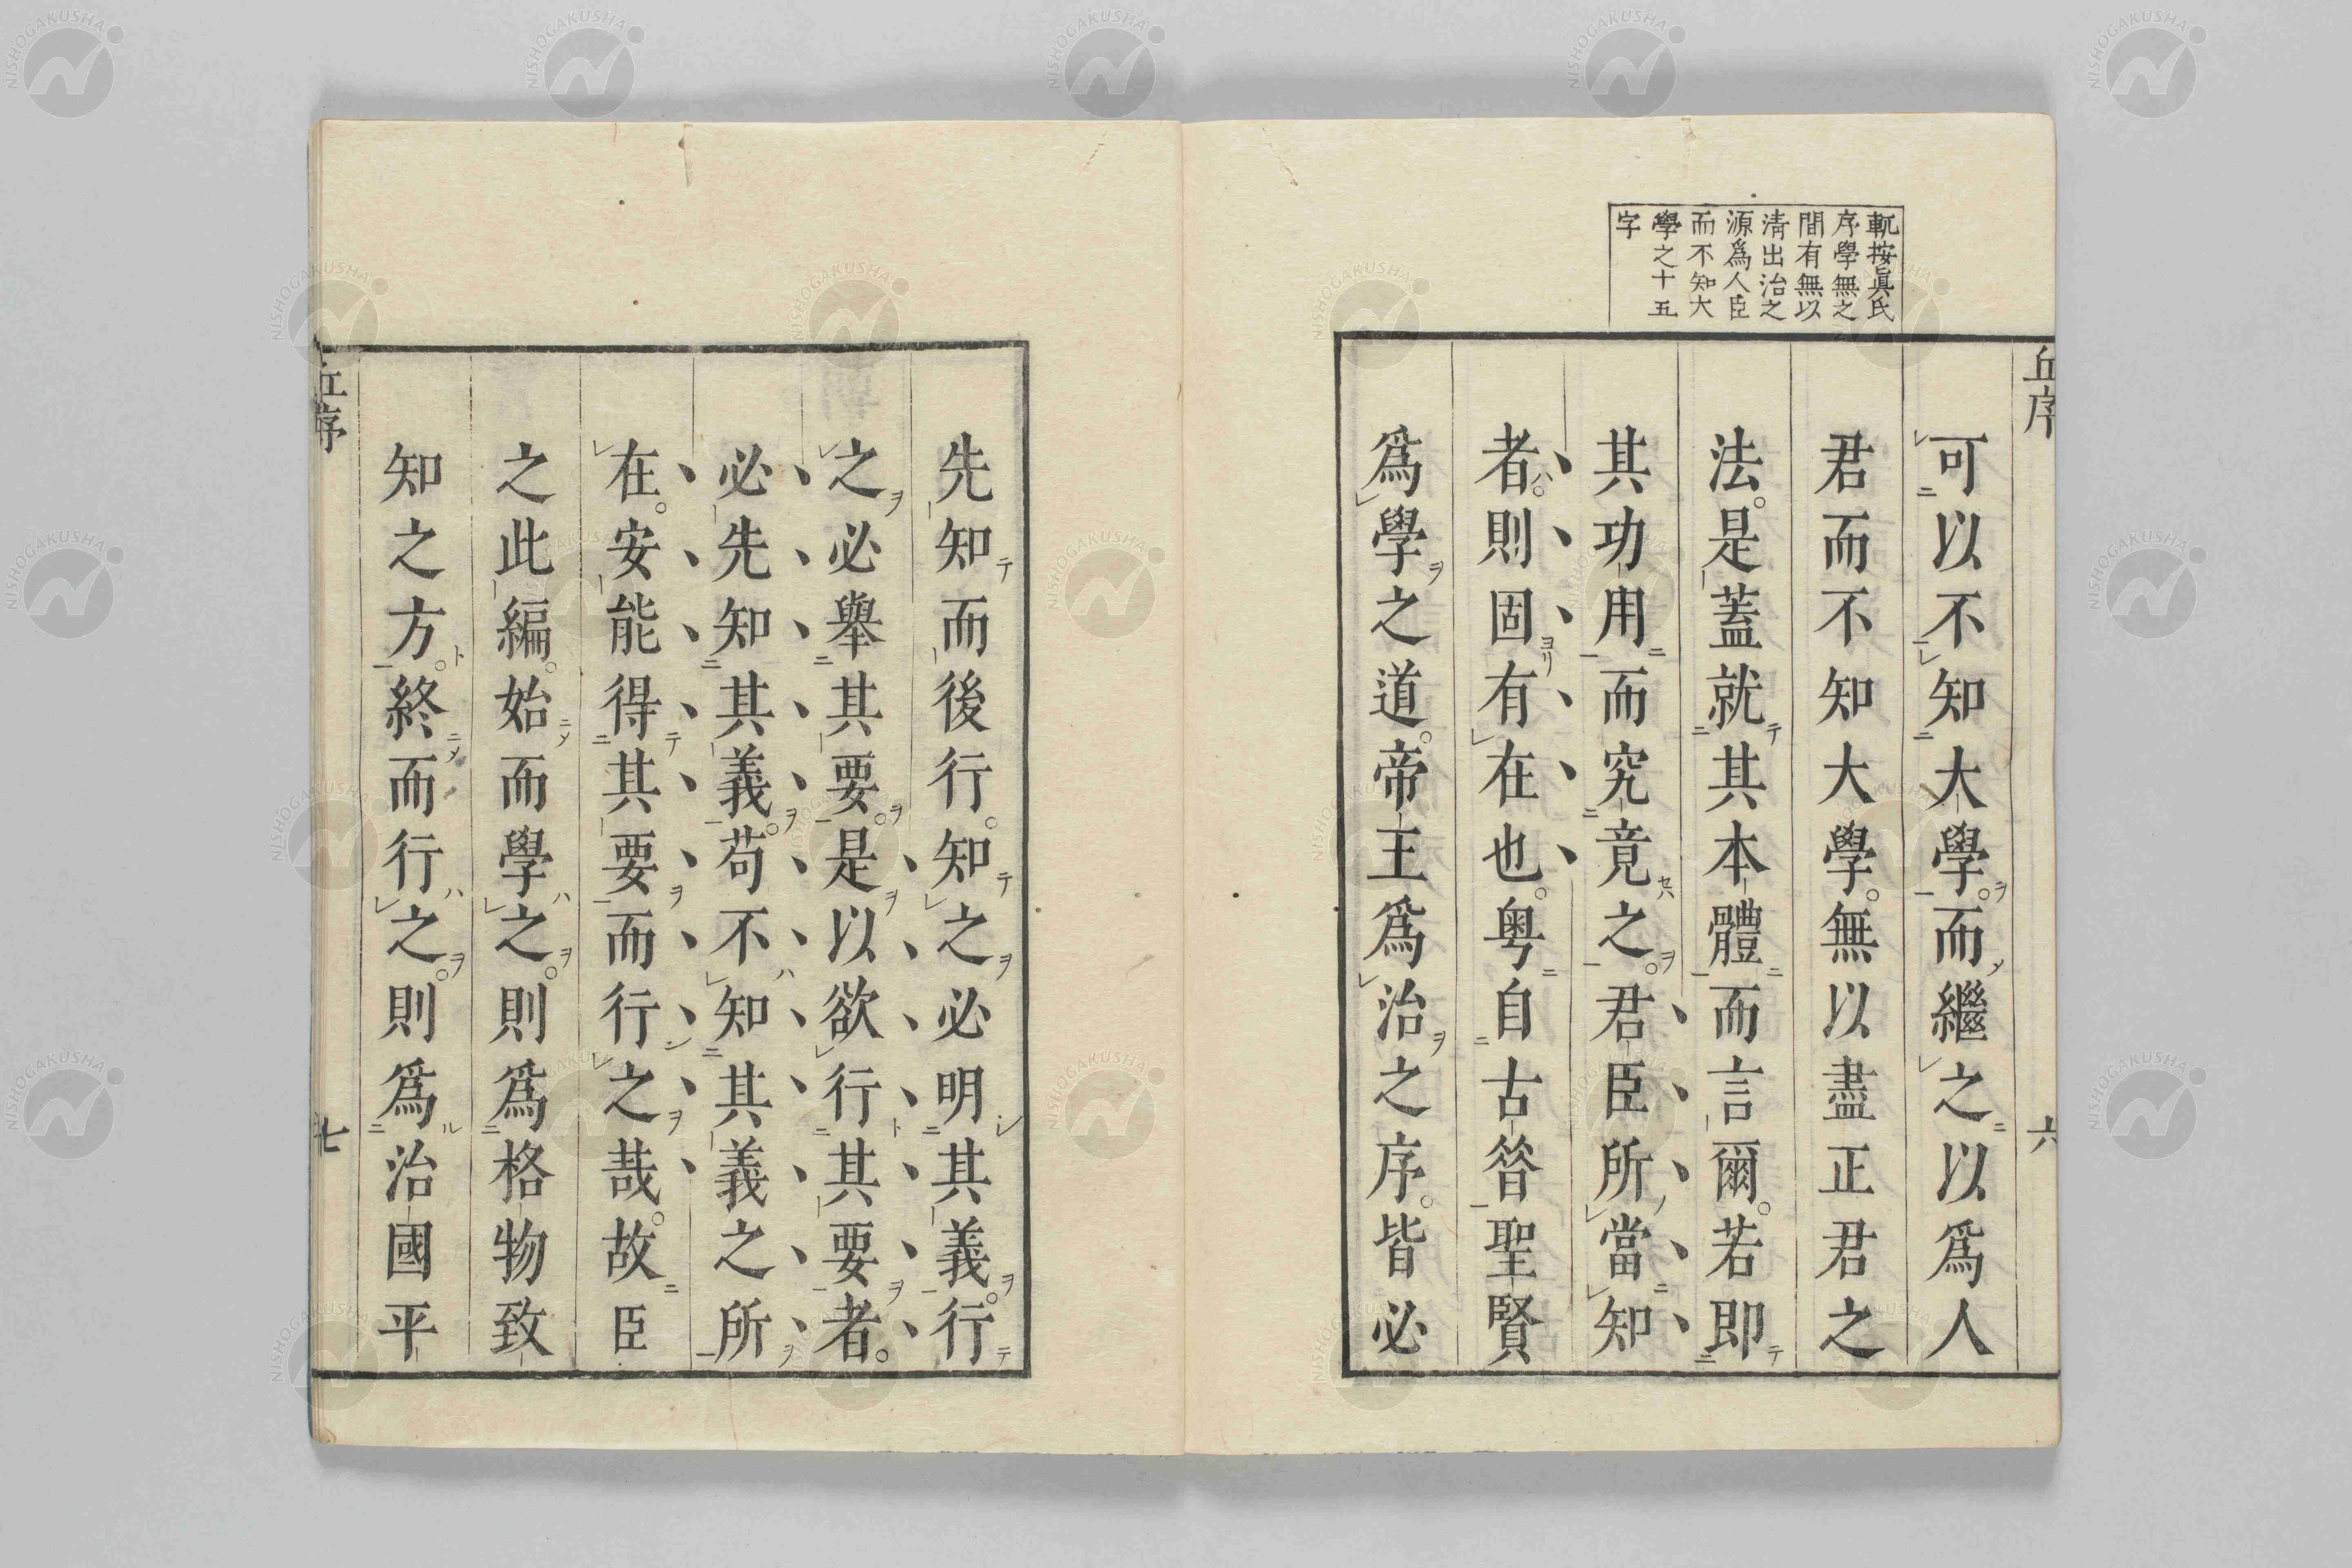 丘序
六
軏按眞氏
序學無之
間有無以
淸出治之
源爲人臣
而不知大
學之十五
字
可以不知大學。而繼之以爲人
君而不知大學。無以盡正君之
法。是蓋就其本體而言爾。若即
其功用而究竟之。君臣所當知
者。則固有在也。粤自古昝聖賢
爲學之道。帝王爲治之序。皆必
先知而後行。知之必明其義。行
之必舉其要。是以欲行其要者。
必先知其義。苟不知其義之所
在。安能得其要而行之哉。故臣
之此編。始而學之。則爲格物致
知之方。終而行之。則爲治國平
丘序
七
NISHOGAKUSHA